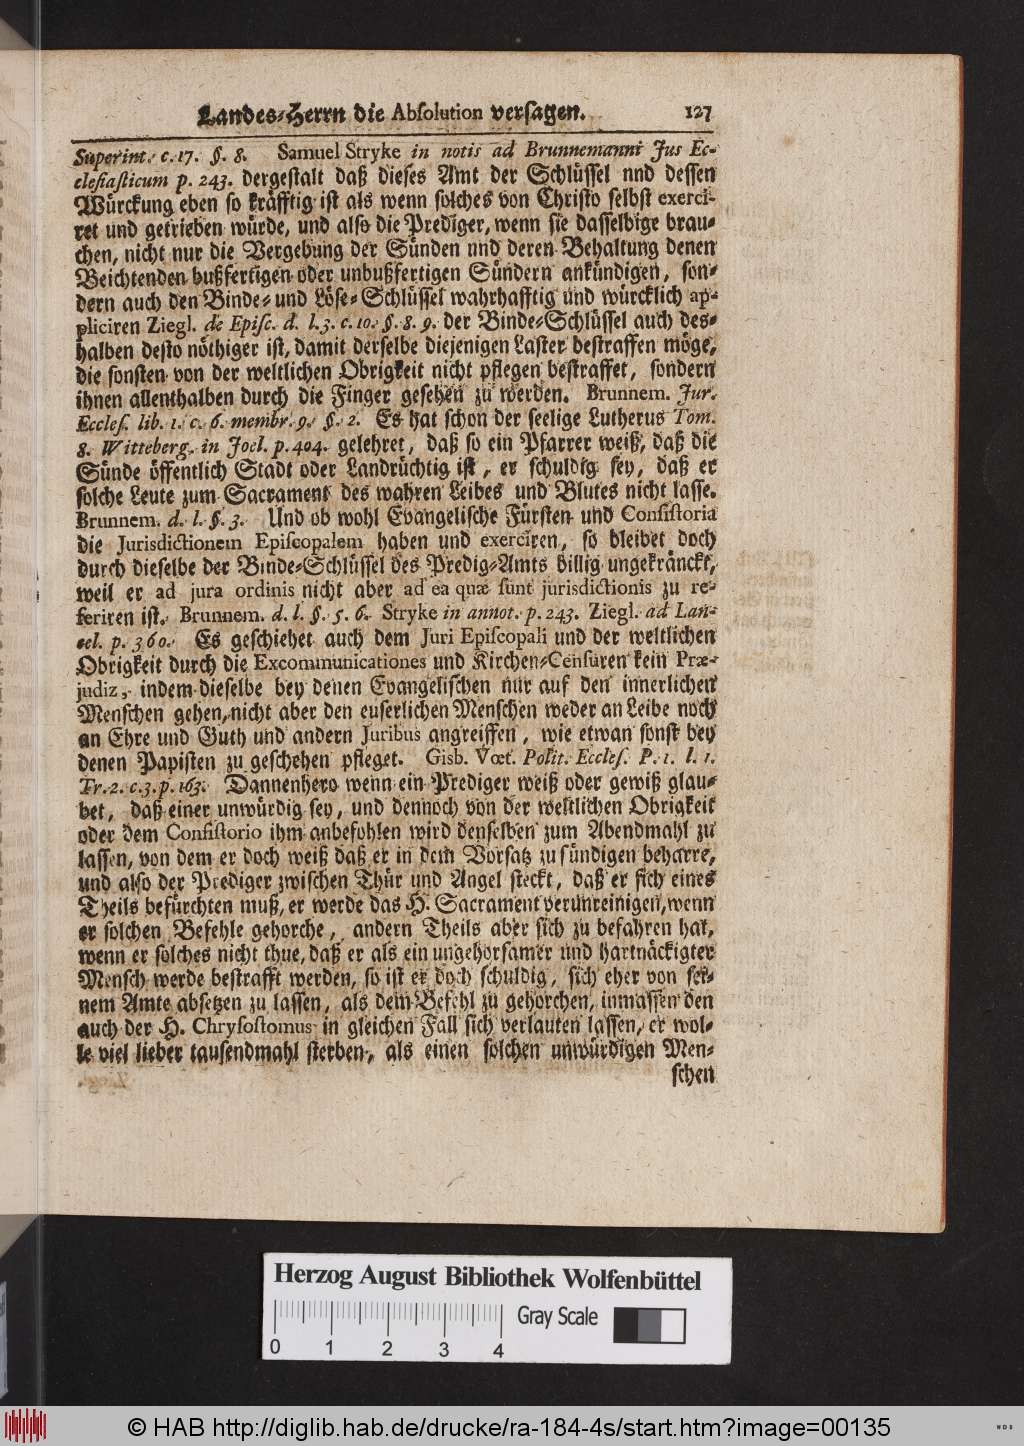 Landes-Herrn die Absolution versagen. 127
Superint. c. 17. §. 8. Samuel Stryke in notis ad Brunnemanni Jus Ec-
clesiasticum p. 243. dergestalt daß dieses Amt der Schlüssel nnd dessen
Würckung eben so kräfftig ist als wenn solches von Christo selbst exerci-
ret und getrieben würde, und also die Prediger, wenn sie dasselbige brau-
chen, nicht nur die Vergebung der Sünden und deren Behaltung denen
Beichtenden bußfertigen oder unbußfertigen Sündern ankündigen, son-
dern auch den Binde- und Löse-Schlüssel wahrhafftig und würcklich ap-
pliciren Ziegl. de Episc. d. l. 3. c. 10. §. 8. 9. der Binde-Schlüssel auch des-
halben desto nöthiger ist, damit derselbe diejenigen Laster bestraffen möge,
die sonsten von der weltlichen Obrigkeit nicht pflegen bestraffet, sondern
ihnen allenthalben durch die Finger gesehen zu werden. Brunnem. Jur.
Eccles. lib. 1. c. 6. membr. 9. §. 2. Es hat schon der seelige Lutherus Tom.
8. Witteberg. in Joel. p. 404. gelehret, daß so ein Pfarrer weiß, daß die
Sünde öffentlich Stadt oder Landrüchtig ist, er schuldig sey, daß er
solche Leute zum Sacrament des wahren Leibes und Blutes nicht lasse.
Brunnem. d. l. §. 3. Und ob wohl Evangelische Fürsten und Consistoria
die Jurisdictionem Episcopalem haben und exerciren, so bleibet doch
durch dieselbe der Binde-Schlüssel des Predig-Amts billig ungekräncket,
weil er ad jura ordinis nicht aber ad ea quæ sunt jurisdictionis zu re-
feriren ist. Brunnem. d. l. §. 5. 6. Stryke in annot. p. 243. Ziegl. ad Lan-
cel. p. 360. Es geschiehet auch dem Juri Episcopali und der weltlichen
Obrigkeit durch die Excommunicationes und Kirchen-Censuren kein Præ-
judiz, indem dieselbe bey denen Evangelischen nur auf den innerlichen
Menschen gehen, nicht aber den euserlichen Menschen weder an Leibe noch
an Ehre und Guth und andern Juribus angreiffen, wie etwan sonst bey
denen Papisten zu geschehen pfleget. Gisb. Vœt. Polit. Eccles. P. 1. l. 1.
Tr. 2. c. 3. p. 163. Dannenhero wenn ein Prediger weiß oder gewiß glau-
bet, daß einer unwürdig sey, und dennoch von der weltlichen Obrigkeit
oder dem Consistorio ihm anbefohlen wird denselben zum Abendmahl zu
lassen, von dem er doch weiß daß er in dem Vorsatz zu sündigen beharre,
und also der Prediger zwischen Thür und Angel steckt, daß er sich eines
Theils befürchten muß, er werde das H. Sacrament verunreinigen, wenn
er solchen Befehle gehorche, andern Theils aber sich zu befahren hat,
wenn er solches nicht thue, daß er als ein ungehorsamer und hartnäckigter
Mensch werde bestrafft werden, so ist er doch schuldig, sich eher von sei-
nem Amte absetzen zu lassen, als dem Befehl zu gehorchen, inmassen den
auch der H. Chrysostomus in gleichen Fall sich verlauten lassen, er wol-
le viel lieber tausendmahl sterben, als einen solchen unwürdigen Men-
schen
Herzog August Bibliothek Wolfenbüttel
Gray Scale
0 1 2 3 4
© HAB http://diglib.hab.de/drucke/ra-184-4s/start.htm?image=00135